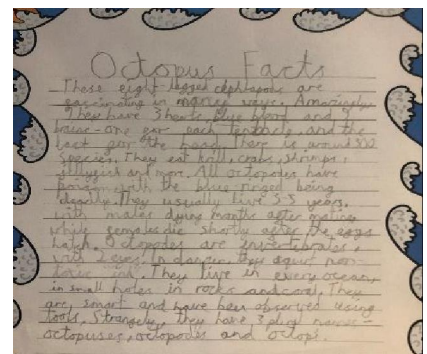 Octopus Facts
These eight-legged cephlapods are
fascinating in many ways. Amazingly,
They have 3 hearts, blue blood and 9
brains - one for each tentacle, and the
last for the head. There is around 300
species. They eat krill, crabs, shrimps,
jellyfish and more. All octopodes have
poison with the blue ringed being
deadly. They usually live 3-5 years,
with males dying months after mating
while females die shortly after the eggs
hatch. Octopodes are invertebrates,
with 2 eyes. In danger, they squirt non-
toxic ink. They live in every ocean,
in small holes in rocks and coral. They
are smart and have been observed using
tools. Strangely, they have 3 plural names -
octopuses, octopodes and octopi.